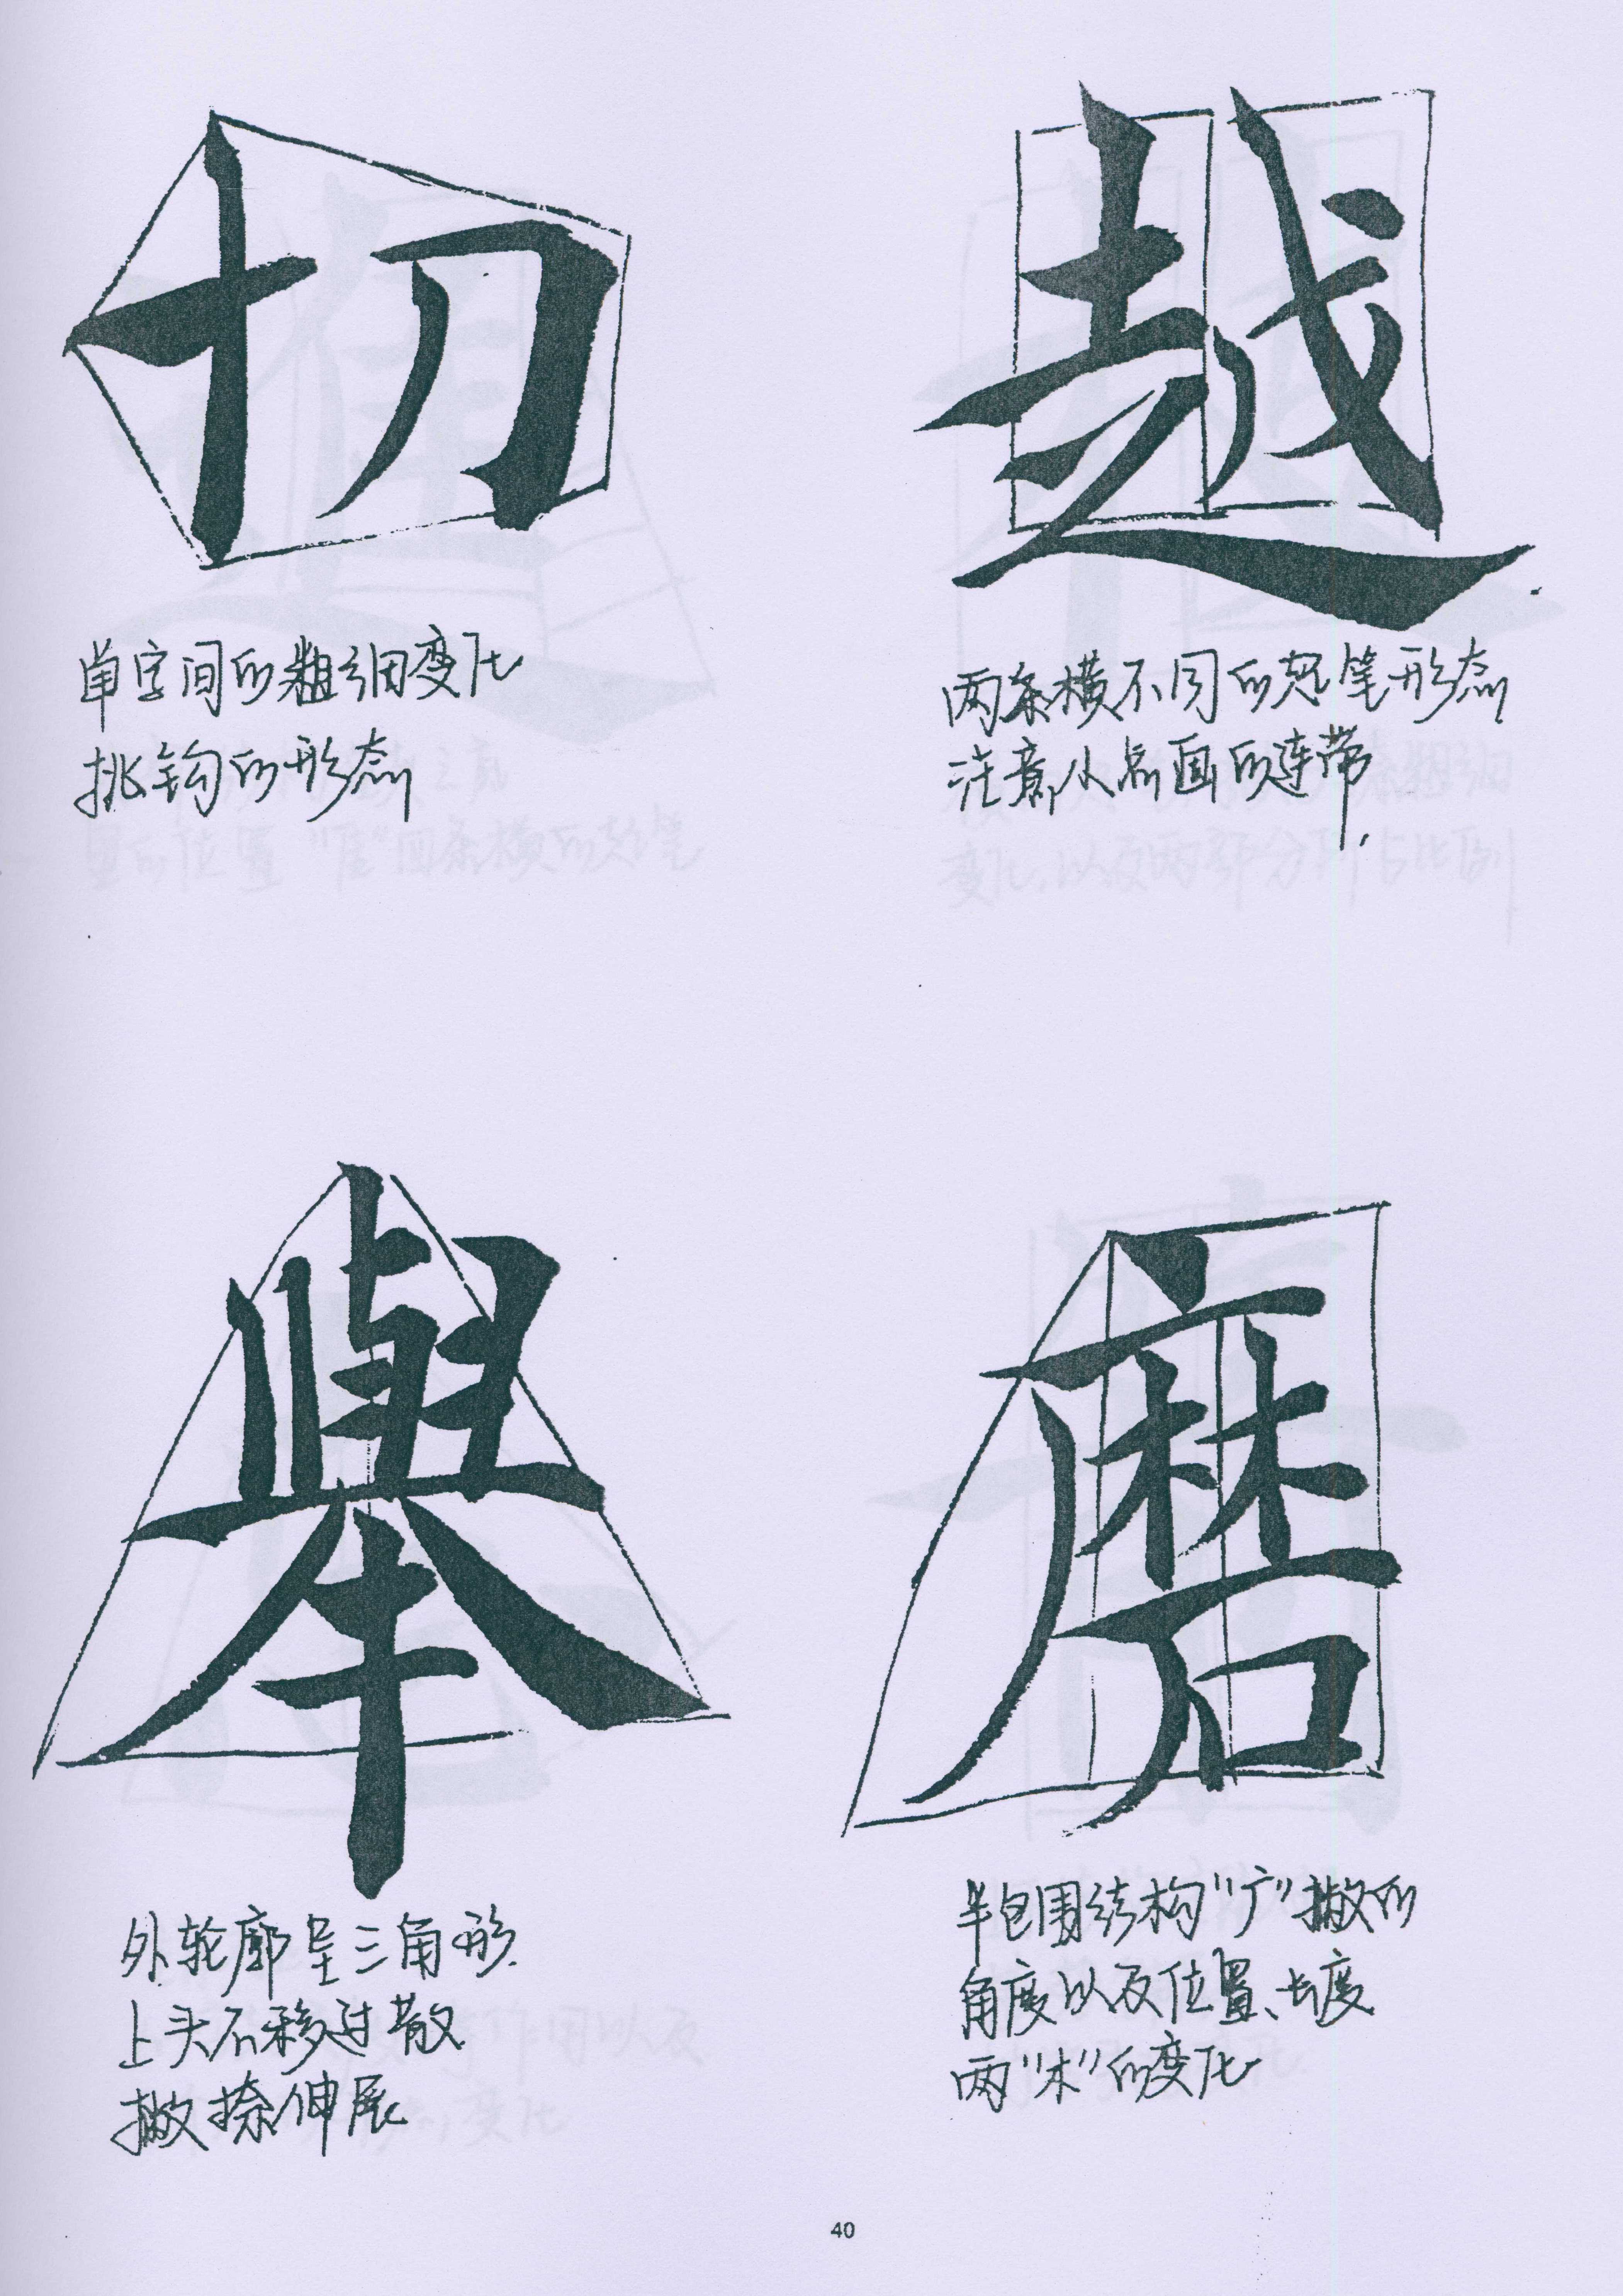 切
单字间的粗细变化
挑钩的形态
越
两条横不同的起笔形态
注意小点画的连带.
舉
外轮廓呈三角形.
上头不移过散
撇捺伸展
磨
半包围结构“广”撇的
角度以及位置、长度
两“木”的变化
40